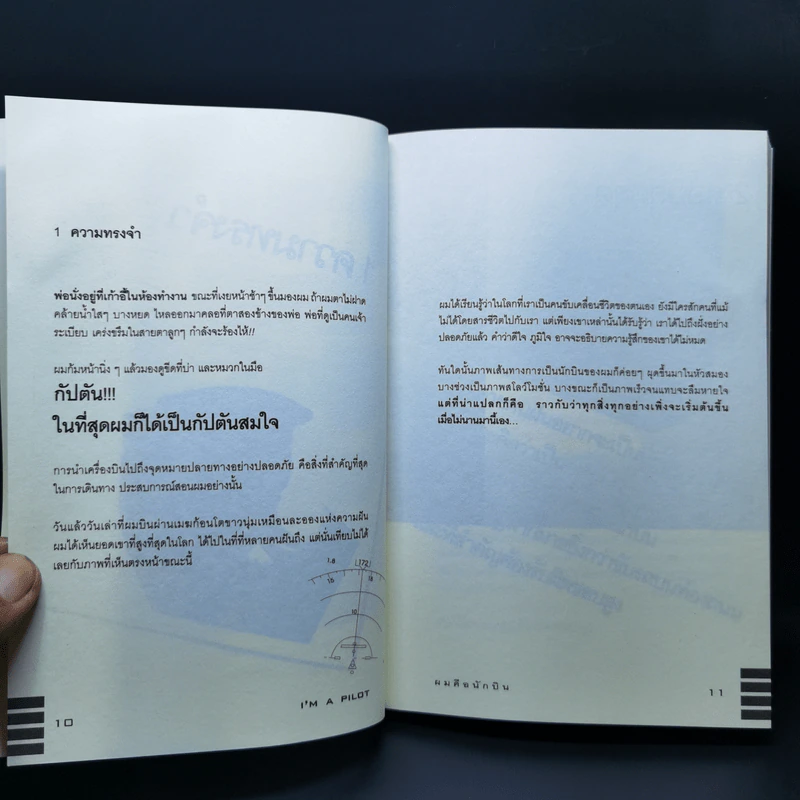 1 ความทรงจำ
พ่อนั่งอยู่ที่เก้าอี้ในห้องทำงาน ขณะที่เงยหน้าช้าๆ ขึ้นมองผม ถ้าผมตาไม่ฝาด
คล้ายน้ำใสๆ บางหยด ไหลออกมาคลอที่ตาสองข้างของพ่อ พ่อที่ดูเป็นคนเจ้า
ระเบียบ เคร่งขรึมในสายตาลูกๆ กำลังจะร้องไห้!!
ผมก้มหน้านิ่ง ๆ แล้วมองดูขีดที่บ่า และหมวกในมือ
กัปตัน!!!
ในที่สุดผมก็ได้เป็นกัปตันสมใจ
การนำเครื่องบินไปถึงจุดหมายปลายทางอย่างปลอดภัย คือสิ่งที่สำคัญที่สุด
ในการเดินทาง ประสบการณ์สอนผมอย่างนั้น
วันแล้ววันเล่าที่ผมบินผ่านเมฆก้อนโตขาวนุ่มเหมือนละอองแห่งความฝัน
ผมได้เห็นยอดเขาที่สูงที่สุดในโลก ได้ไปในที่ที่หลายคนฝันถึง แต่นั่นเทียบไม่ได้
เลยกับภาพที่เห็นตรงหน้าขณะนี้
10
I'M A PILOT
ผมได้เรียนรู้ว่าในโลกที่เราเป็นคนขับเคลื่อนชีวิตของตนเอง ยังมีใครสักคนที่แม้
ไม่ได้โดยสารชีวิตไปกับเรา แต่เพียงเขาเหล่านั้นได้รับรู้ว่า เราได้ไปถึงฝั่งอย่าง
ปลอดภัยแล้ว คำว่าดีใจ ภูมิใจ อาจจะอธิบายความรู้สึกของเขาได้ไม่หมด
ทันใดนั้นภาพเส้นทางการเป็นนักบินของผมก็ค่อยๆ ผุดขึ้นมาในหัวสมอง
บางช่วงเป็นภาพสโลว์โมชั่น บางขณะก็เป็นภาพเร็วจนแทบจะลืมหายใจ
แต่ที่น่าแปลกก็คือ ราวกับว่าทุกสิ่งทุกอย่างเพิ่งจะเริ่มต้นขึ้น
เมื่อไม่นานมานี้เอง...
ผมคือนักบิน
11